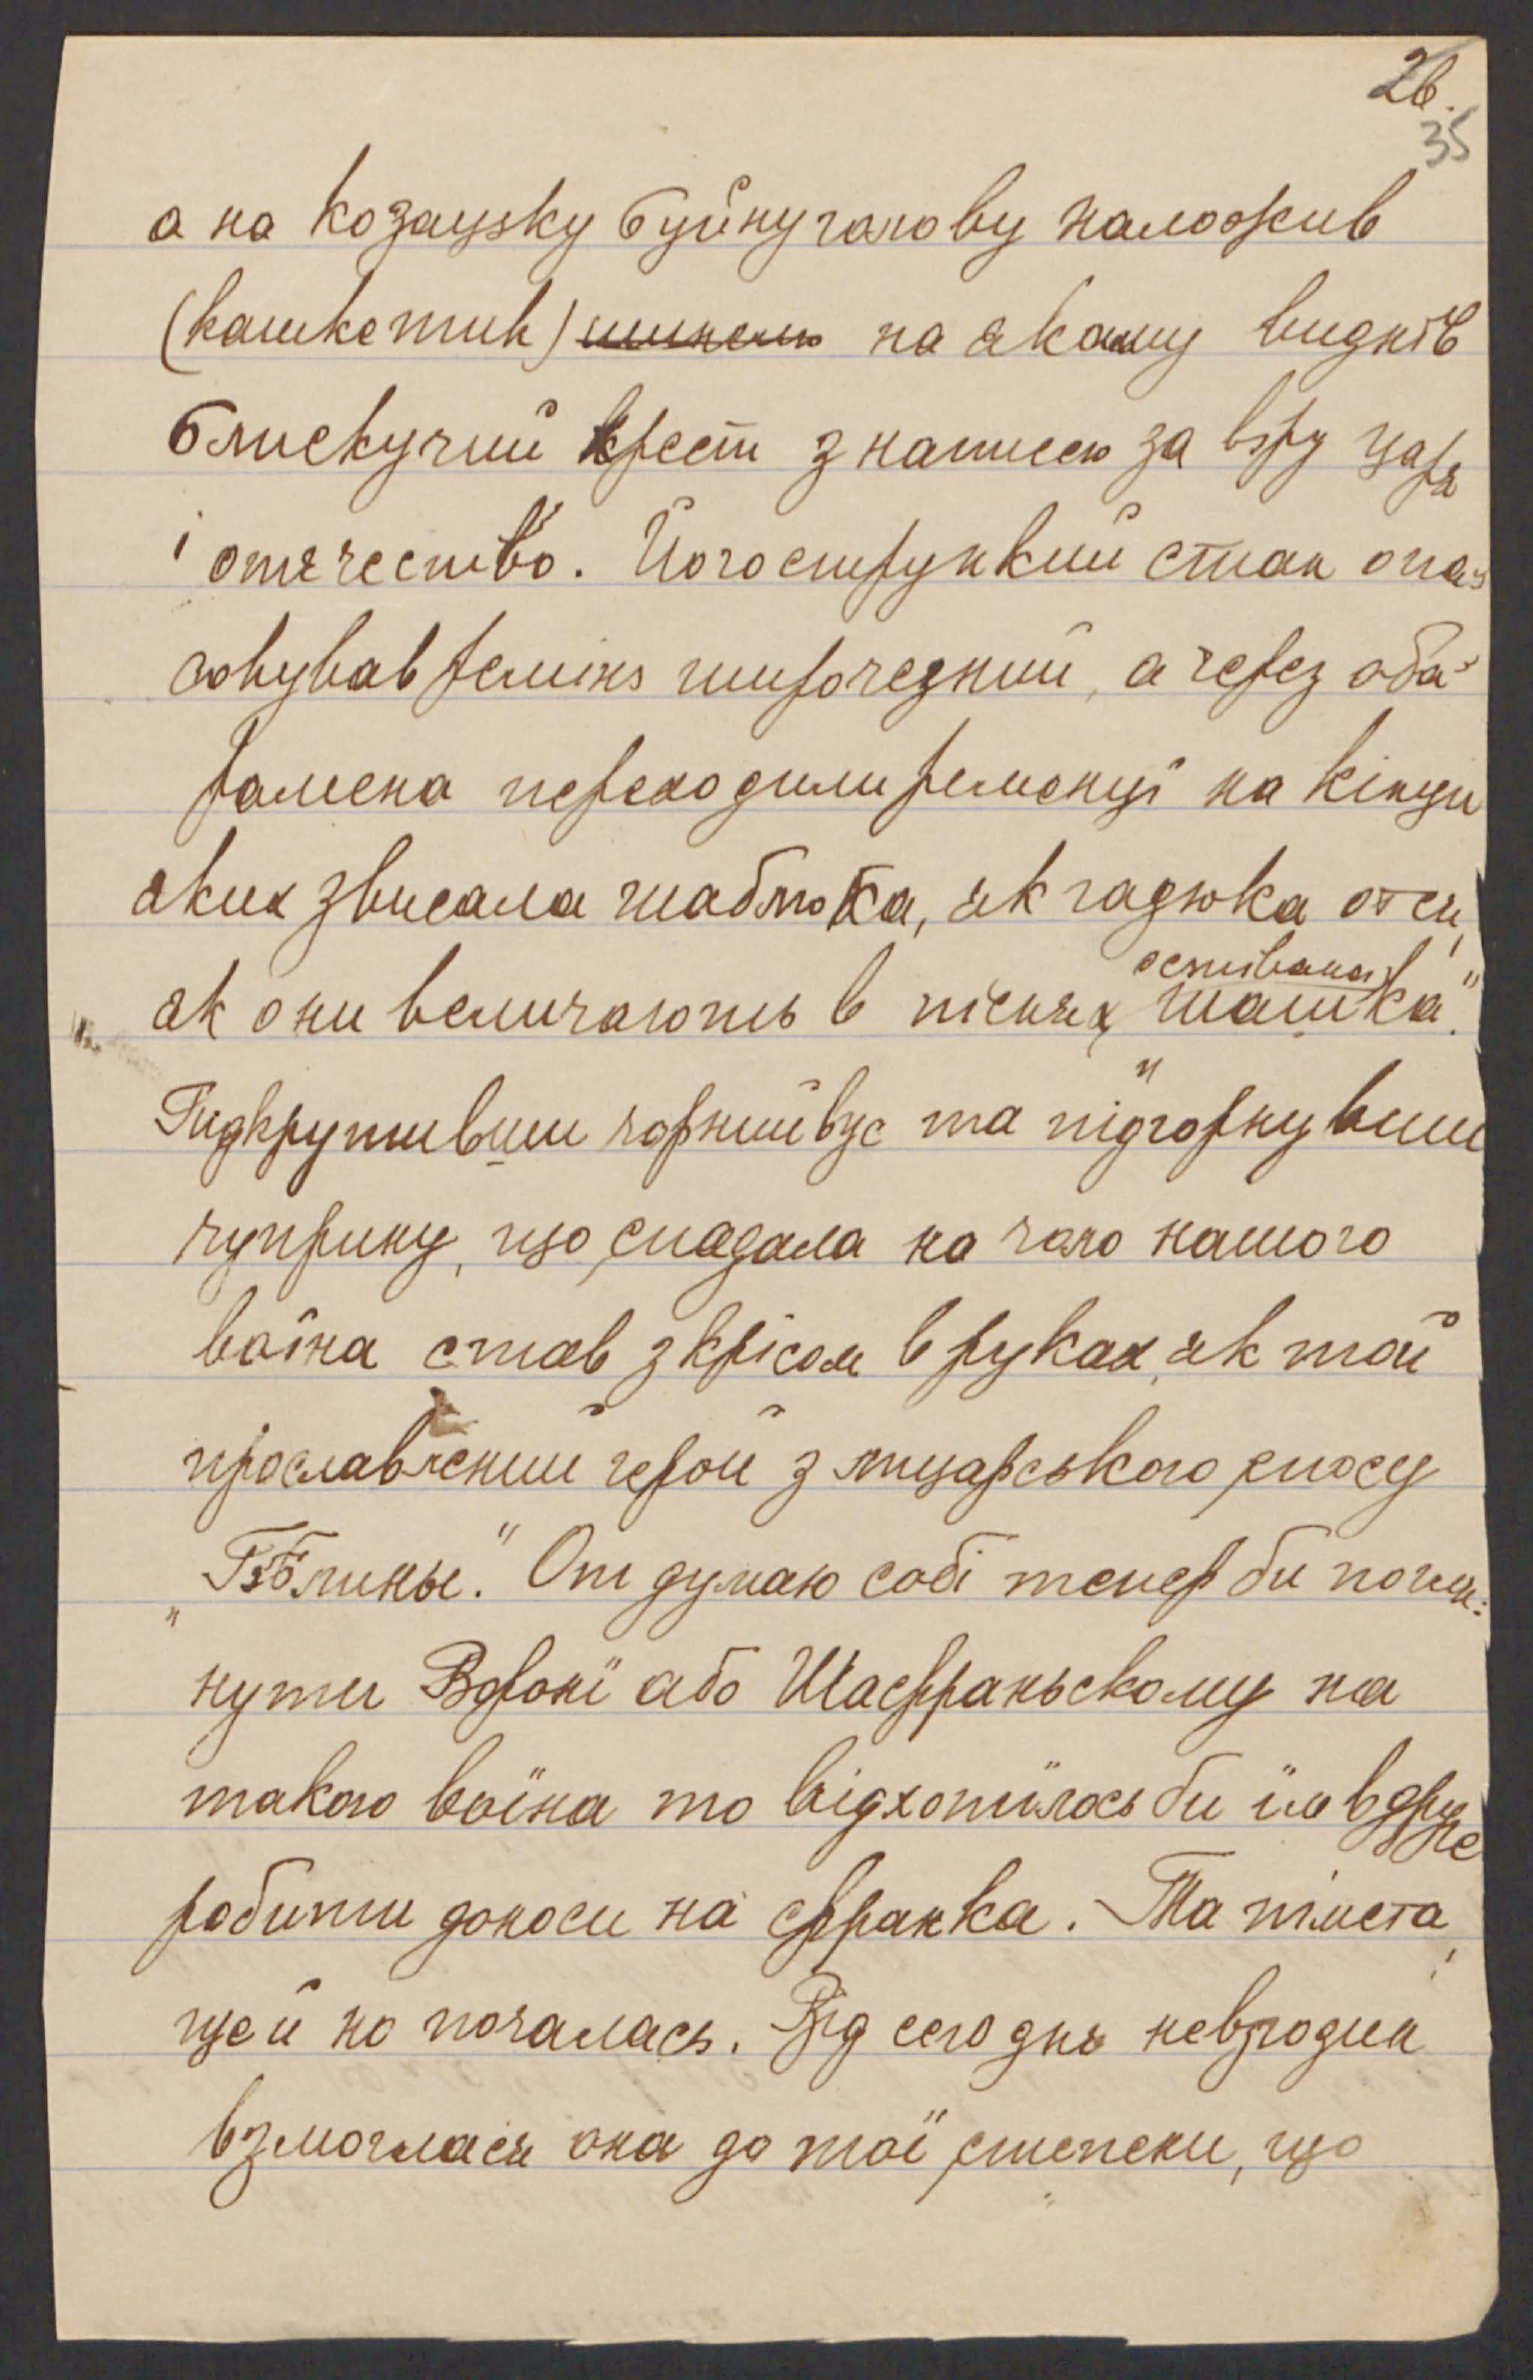 26.
35
а на козацьку буйну голову наложив
(кашкетик) на якому виднів
блискучий крест з написею за вѣру царя
і отячество. Його струнский стан опа-
совував ремінь широчезний, а через оба
рамена переходили ременці на кінци
яких звисала шаблюка, як гадюка отся,
як они величають в піснях
оспівана
„шашка."
Пидкрутивши чорний вус та підгорнувши
чуприну, що спадала на чоло нашого
воїна став з крісом в руках, як той
прославлений герой з лицарського епосу
„Былины." От думаю собі тепер би погля-
нути або Шафраньскому на
такого воїна то відхотілось би їм вдруге
робити доноси на франка. Та
щей но почалась. Від сего дня
взмоглася она до тої степени, що